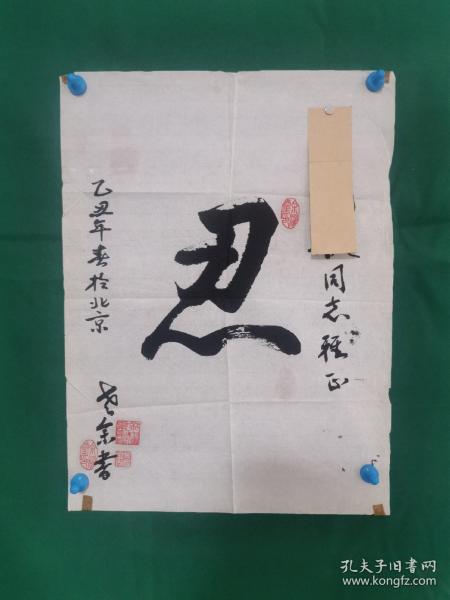 同志雅正
忍
乙丑年春於北京
老余書
孔夫子旧书网
www.kongfz.com